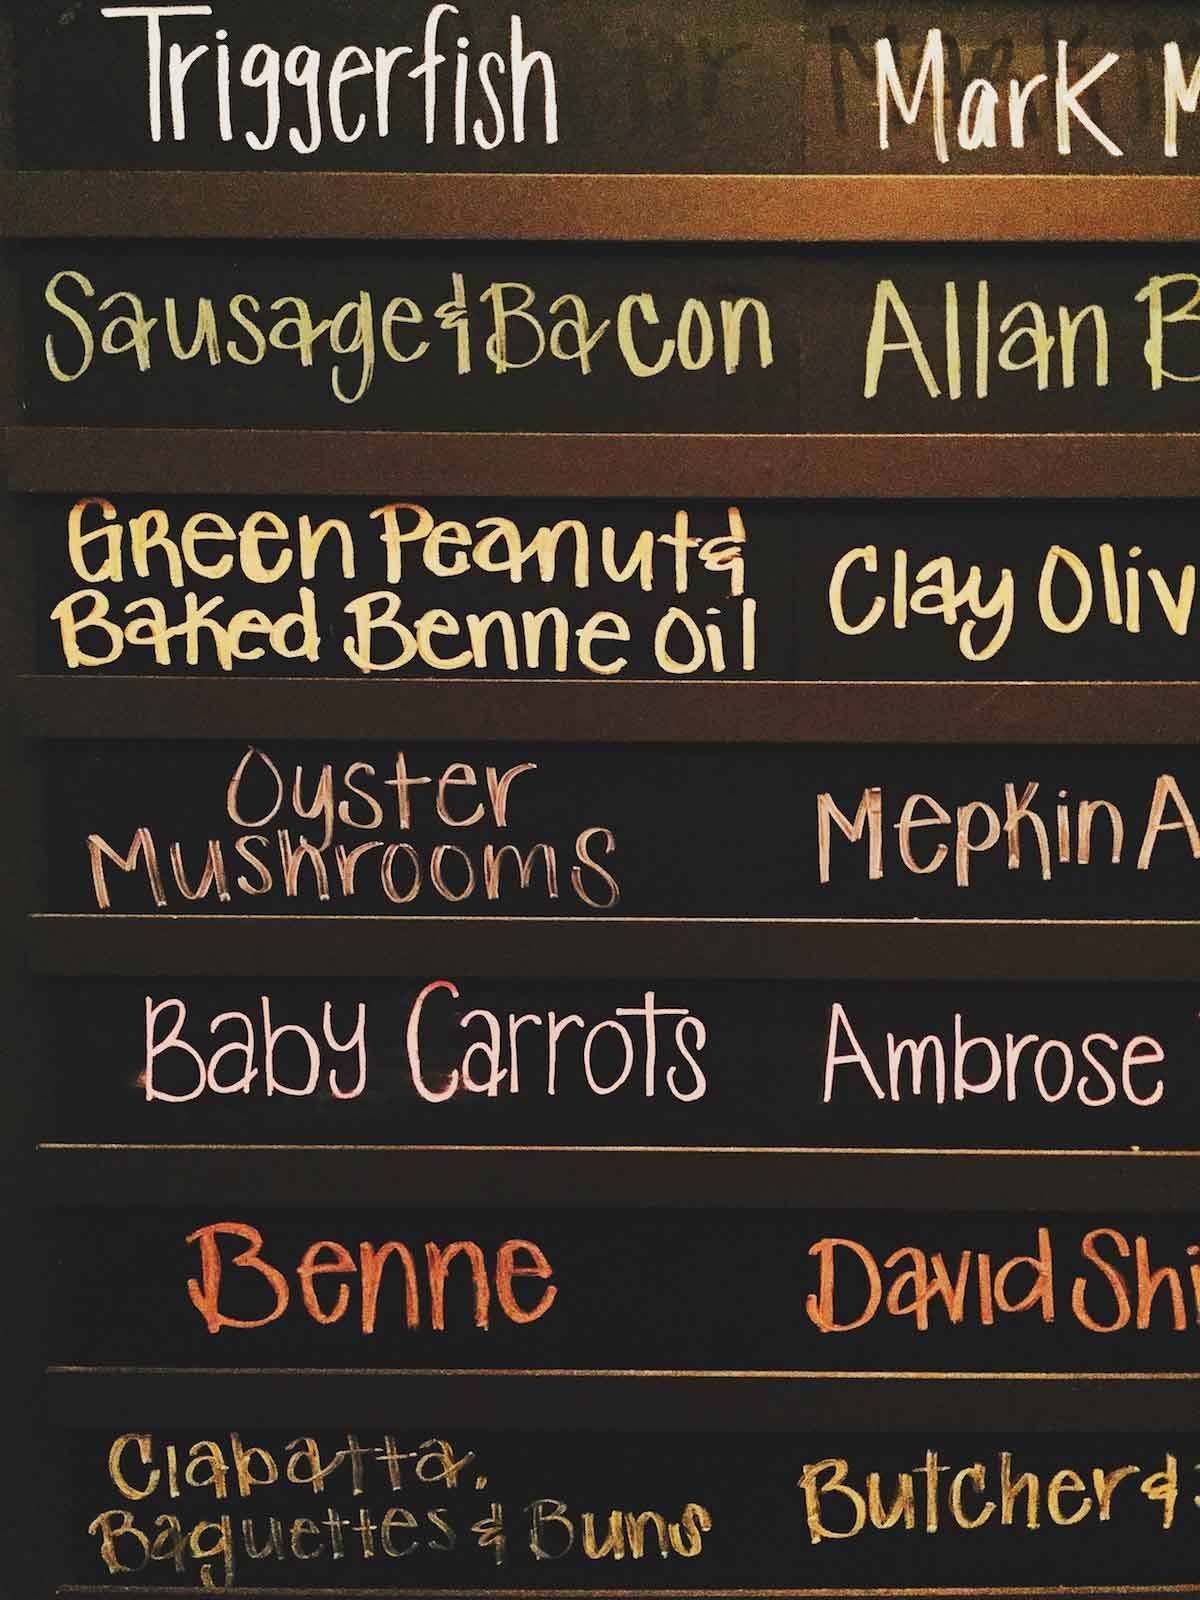 Triggerfish Mark M
Sausage & Bacon Allan B
Green Peanut &
Baked Benne Oil Clay Oliv
Oyster
Mushrooms Mepkin A
Baby Carrots Ambrose
Benne David Shi
Ciabatta,
Baguettes & Buns Butcher &